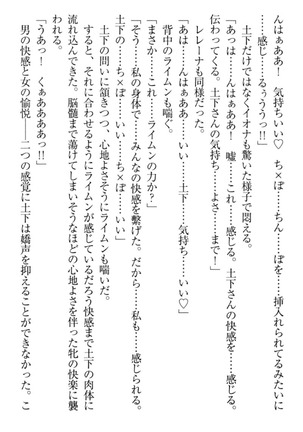 んはぁああ！　気持ちいい♡　ち×ぽ……ちん……ぽを……挿入れられてるみたいに
……感じ……るぅうう っ!!」
　土下だけではなくイオナも驚いた様子で悶える。
「あっは……んはぁああ！　嘘……これ……感じる。土下さんの快感を……感じる。
伝わってくる。土下さんの気持ち……よさ……まで！」
　レレーナも同様だった。
「あは……んぁああ！　いい……土下……気持ち……いい♡」
　背中のライムンも喘ぐ。
「まさか……これ……ライムンの力か？」
「そう……私の身体で……みんなの快感を繋げた。だから……私も……感じられる。
土下の……ち×ぽ……いい……ち×ぽ……いい」
　土下の問いに頷きつつ、心地よさそうにライムンも喘いだ。
　すると、それに合わせるようにライムンが感じているだろう快感まで土下の肉体に
流れ込んできた。脳髄まで蕩けてしまいそうなほどの心地よさを伴った牝の快楽に襲
われる。
「うあっ！　くぁああああっ！」
　男の快感と女の愉悦――二つの感覚に土下は嬌声を抑えることができなかった。こ